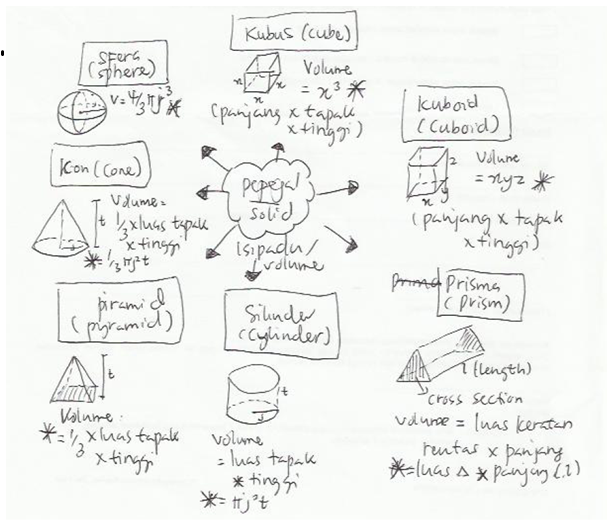 Sfera
(sphere)
V = 4/3 πj³ *
Kubus (cube)
x x x
Volume
= x³ *
(panjang x tapak
x tinggi)
Kuboid
(cuboid)
z
x y
Volume
= xyz *
(panjang x tapak
x tinggi)
Kon (cone)
t
j
Volume =
1/3 x luas tapak
x tinggi
* = 1/3 πj²t
pepejal
solid
Isipadu/
volume
piramid
(pyramid)
t
Volume:
* = 1/3 x luas tapak
x tinggi
Silinder
(cylinder)
t
j
volume
= luas tapak
* tinggi
* = πj²t
Prisma
(prism)
l (length)
cross section
volume = luas keratan
rentas x panjang
* = luas Δ x panjang (l)